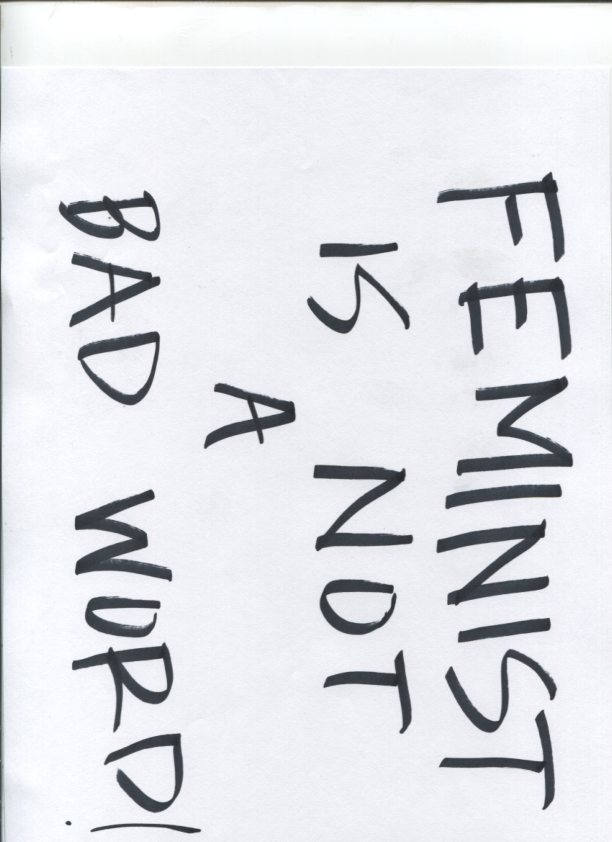 FEMINIST
IS NOT
A
BAD WORD!